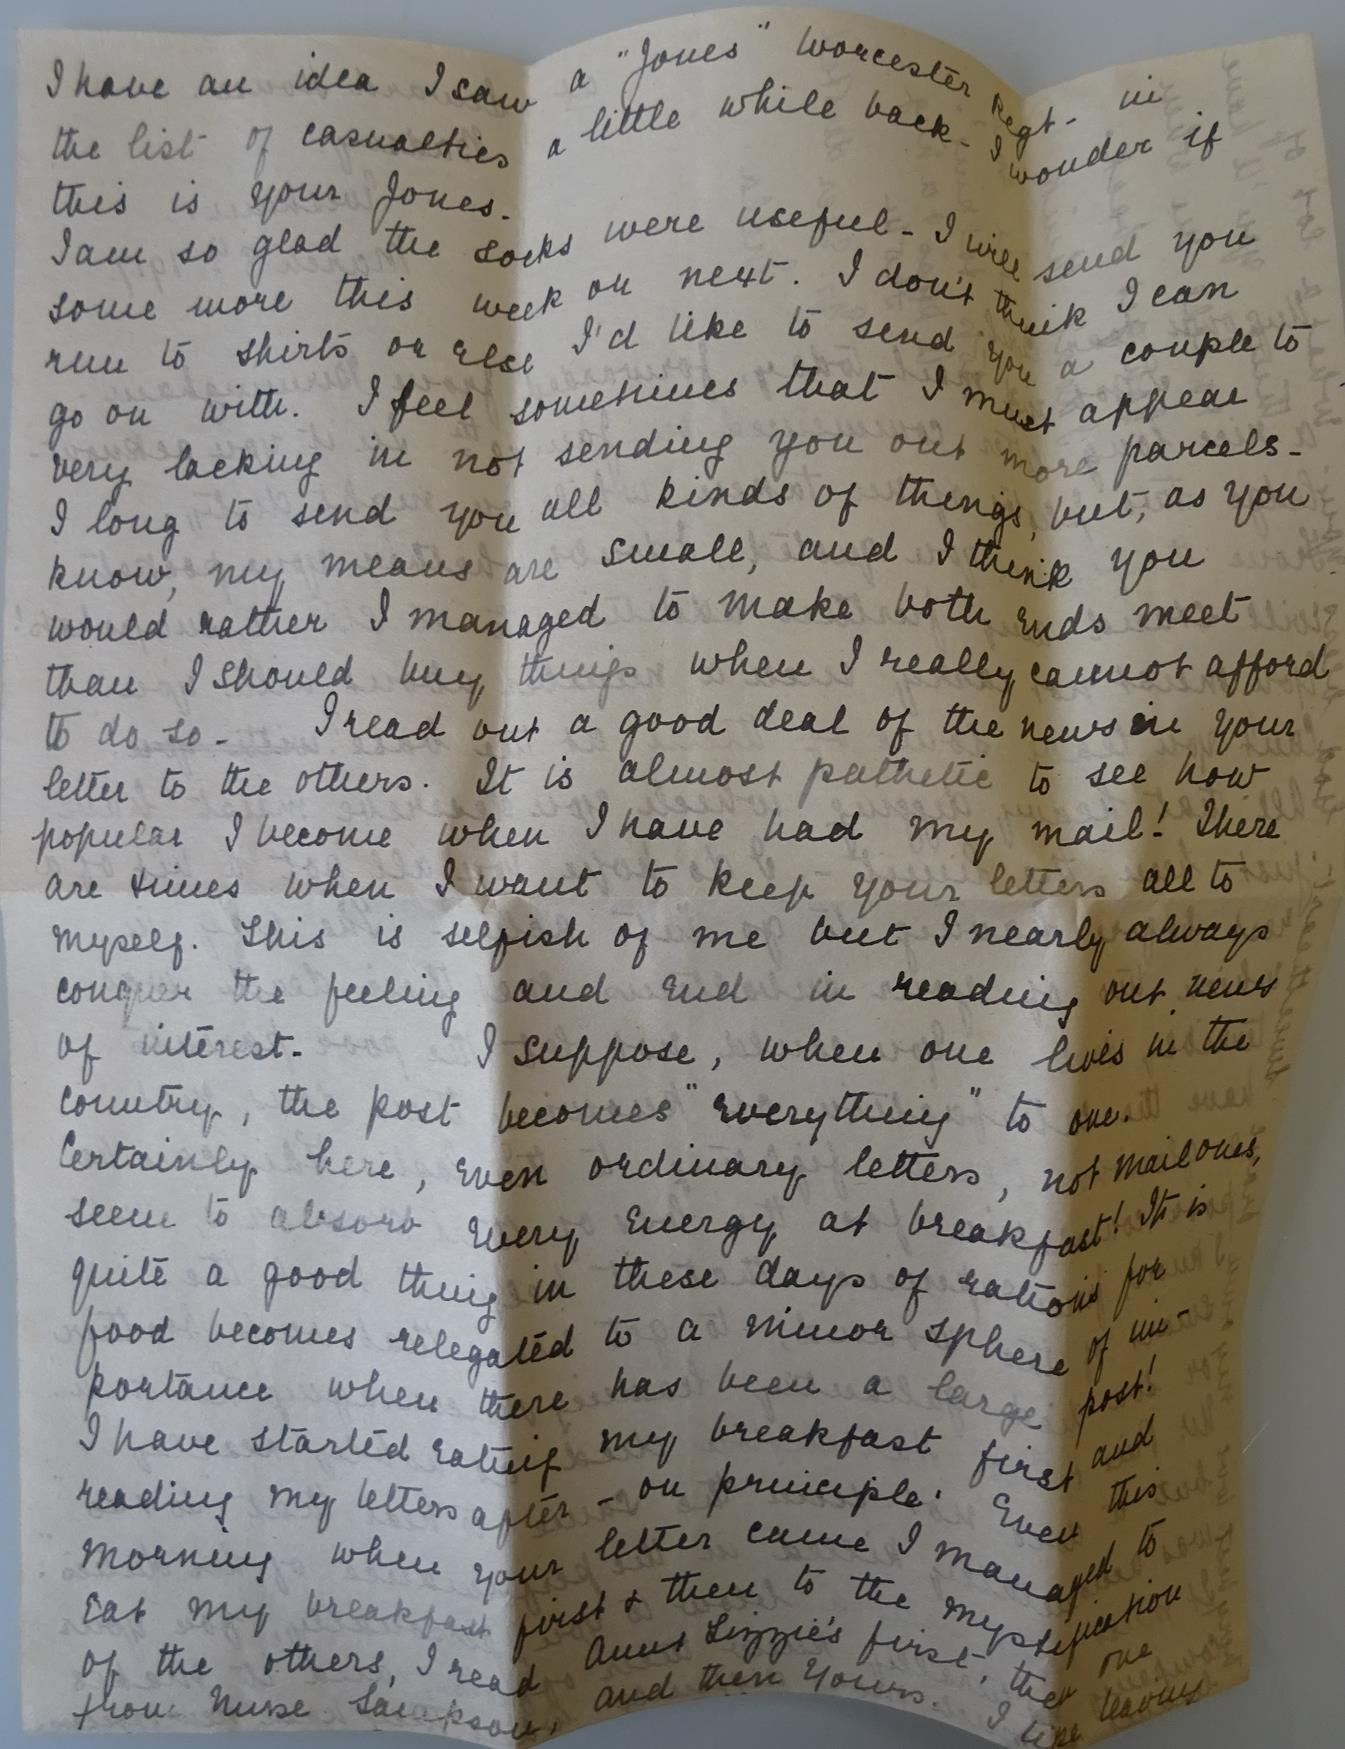 I have an idea I saw a "Jones" Worcester Regt. in
the list of casualties a little while back - I wonder if
this is your Jones.
I am so glad the socks were useful - I will send you
some more this week or next. I don't think I can
run to shirts or else I'd like to send you a couple to
go on with. I feel sometimes that I must appear
very lacking in not sending you out more parcels -
I long to send you all kinds of things, but, as you
know, my means are small, and I think you
would rather I managed to make both ends meet
than I should buy things when I really cannot afford
to do so - I read out a good deal of the news in your
letter to the others. It is almost pathetic to see how
popular I become when I have had my mail! There
are times when I want to keep your letters all to
myself. This is selfish of me but I nearly always
conquer the feeling and end in reading out news
of interest - I suppose, when one lives in the
country, the post becomes "everything" to one.
Certainly here, even ordinary letters, not mail ones,
seem to absorb every energy at breakfast! It is
quite a good thing in these days of rations for
food becomes relegated to a minor sphere of im-
portance when there has been a large post!
I have started eating my breakfast first and
reading my letters after - on principle. Even this
morning when your letter came I managed to
eat my breakfast first & then to the mystification
of the others, I read Aunt Lizzie's first, then one
from Nurse Sampson, and then yours. I like leaving